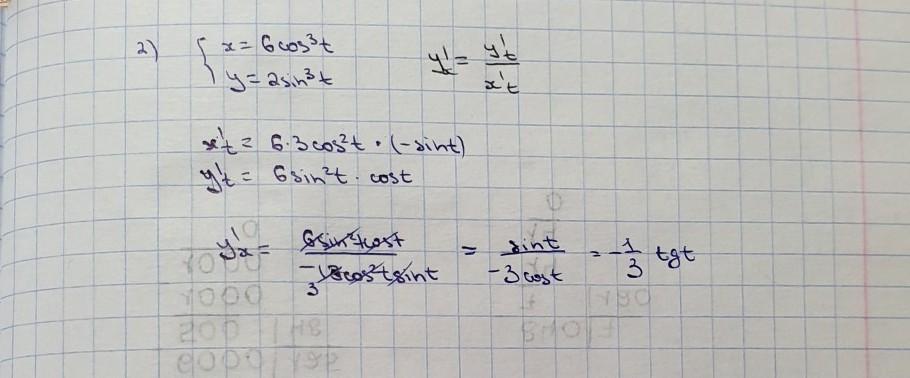 2) { x = 6cos³t
y = 2sin³t
y'x = y't / x't
x't = 6·3cos²t · (-sint)
y't = 6sin²t · cost
y'x = 6sin²tcost / -18cos²tsint = sint / -3cost = -1/3 tgt
3